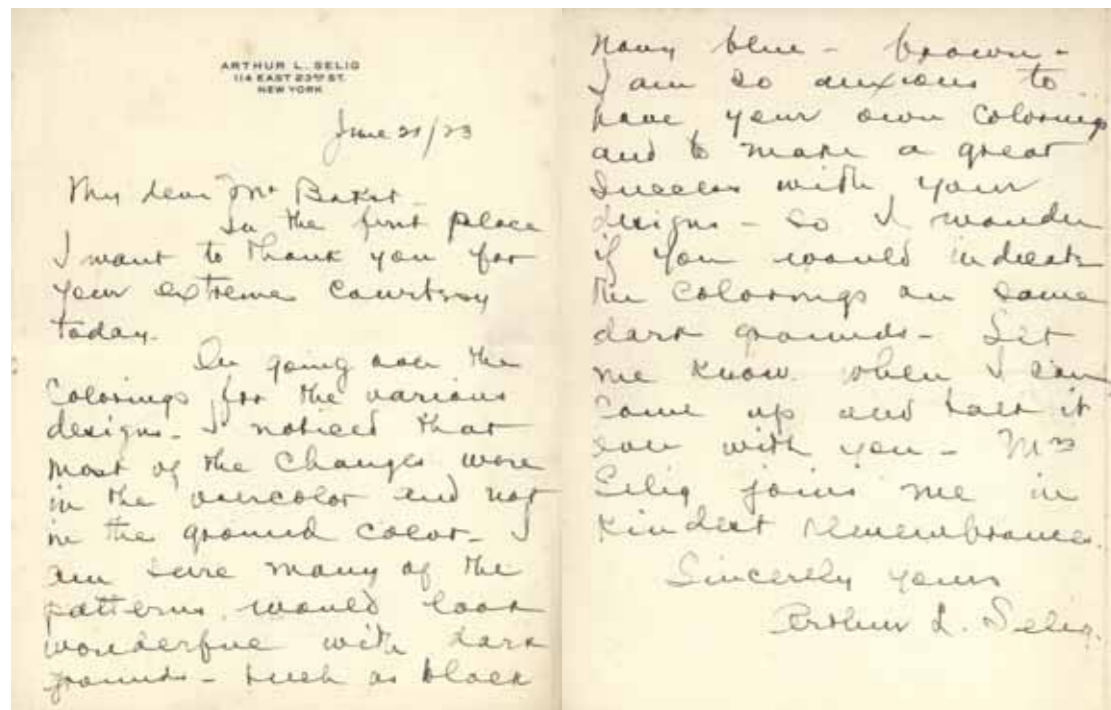 ARTHUR L. SELIG
114 EAST 23RD ST.
NEW YORK
June 21/23
My dear Mr Baker -
In the first place
I want to thank you for
your extreme courtesy
today.
In going over the
colorings for the various
designs - I noticed that
most of the changes were
in the overcolor and not
in the ground color - I
am sure many of the
patterns would look
wonderful with dark
grounds - such as black
navy blue - brown -
I am so anxious to
have your own colorings
and to make a great
success with your
designs - so I wonder
if you would indicate
the colorings on some
dark grounds - Let
me know when I can
come up and talk it
over with you - Mrs
Selig joins me in
kindest remembrances.
Sincerely yours
Arthur L. Selig.